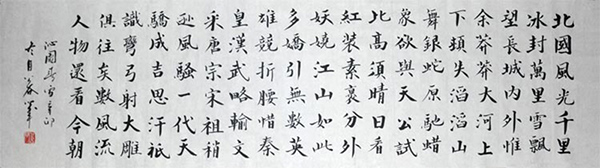 北國風光千里
冰封萬里雪飄
望長城內外惟
余莽莽大河上
下頓失滔滔山
舞銀蛇原馳蠟
象欲與天公試
比高須晴日看
紅裝素裹分外
妖嬈江山如此
多嬌引無數英
雄競折腰惜秦
皇漢武略輸文
采唐宗宋祖稍
遜風騷一代天
驕成吉思汗祇
識彎弓射大雕
俱往矣數風流
人物還看今朝
沁園春雪辛卯